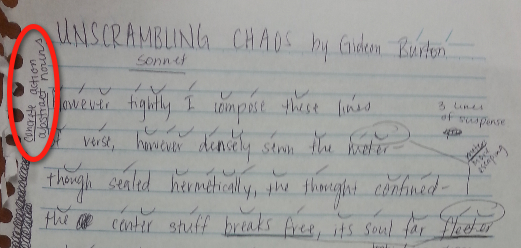 UNSCRAMBLING CHAOS by Gideon Burton
sonnet
However tightly I compose these lines
of verse, however densely sewn the meter—
though sealed hermetically, the thought confined—
the center stuff breaks free, its soul far fleeter
concrete action
abstract nouns
3 lines
of suspense